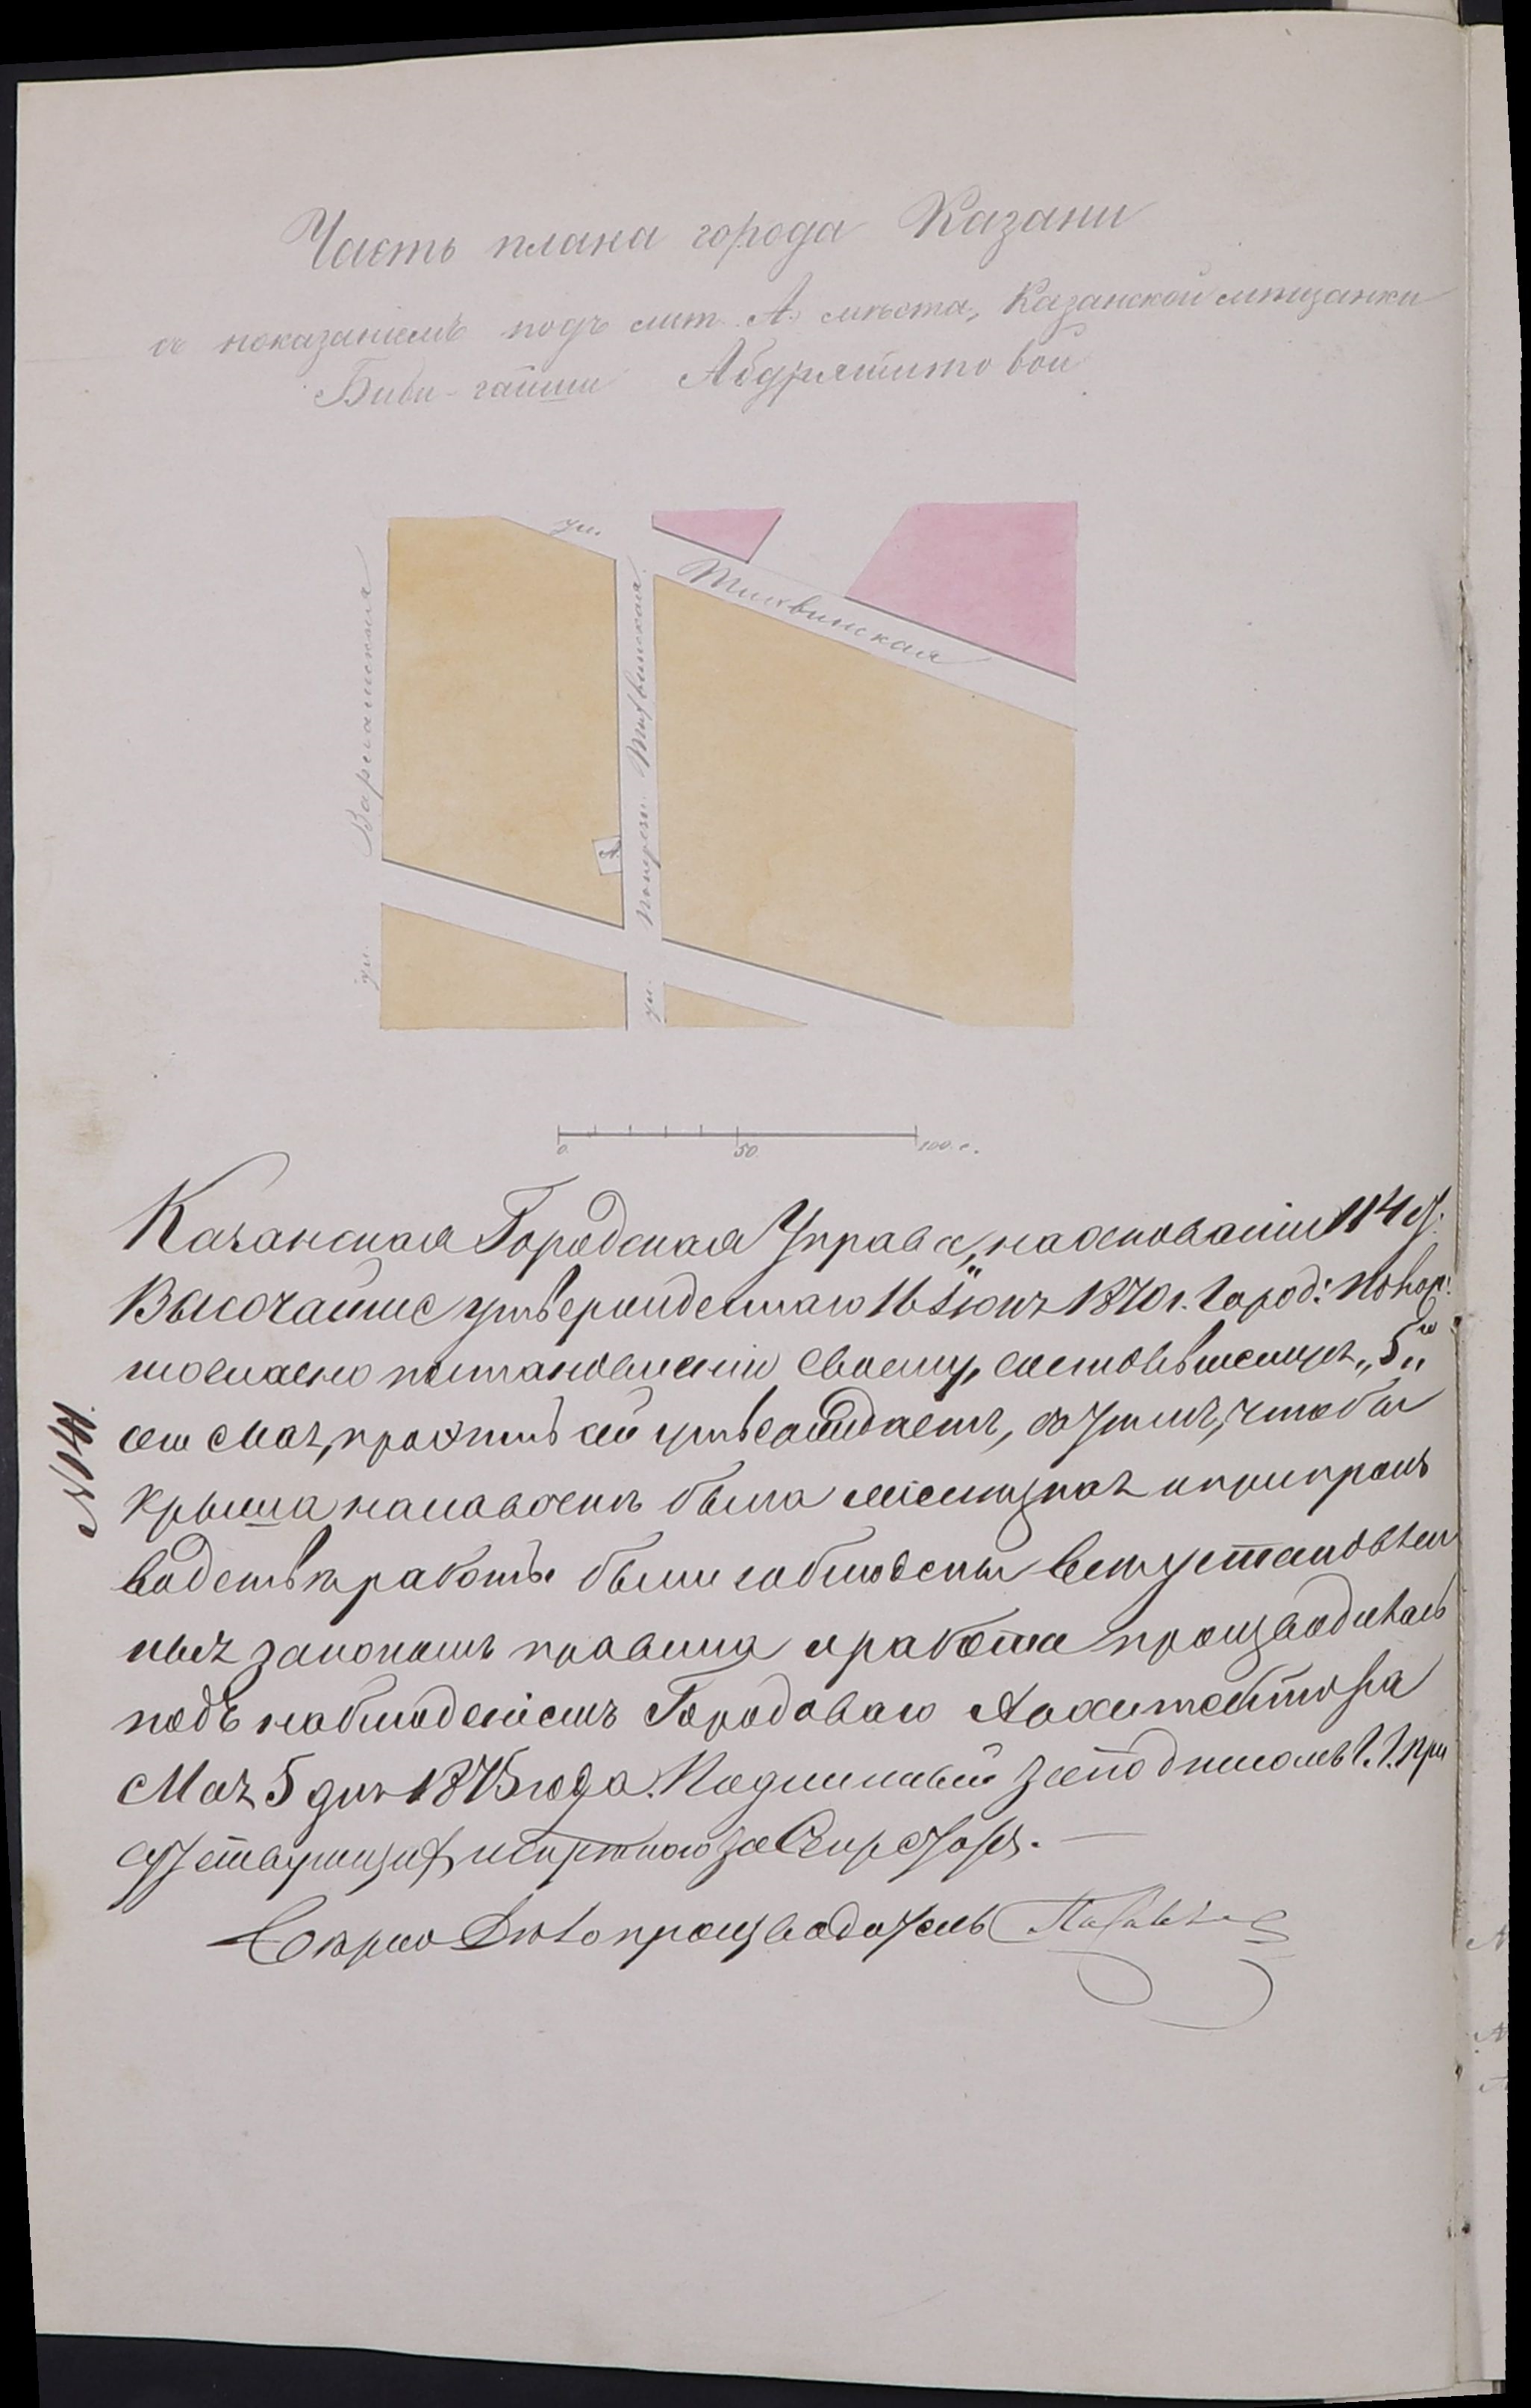 Часть плана города Казани
съ показаніемъ подъ лит. А. мѣста, Казанской мѣщанки
Биби-гайши Абдрятитовой
ул.
Тихвинская
Варламская
Попереч. Тихвинская
А.
ул.
ул.
0. 50. 100 с.
Казанская Городская Управа, на основаніи 114 ст.
Высочайше утвержденнаго 16 Іюня 1870 г. Город: Полож:
согласно постановленію своему, состоявшемуся „5"го
сего Мая, проэктъ сей утверждаетъ, съ тѣмъ, чтобы
крыша на лавочкѣ была и при произ
водствѣ работъ были соблюдены всѣ установлен
ныя закономъ правила и работа производилась
подъ наблюденіемъ Городоваго Архитектора
Мая 5 дня 1875 года. Подлинный за подписомъ г.г. При
сутствующихъ и скрѣпою за Секретаря. —
Вѣрно Дѣлопроизводитель
№ 1411.